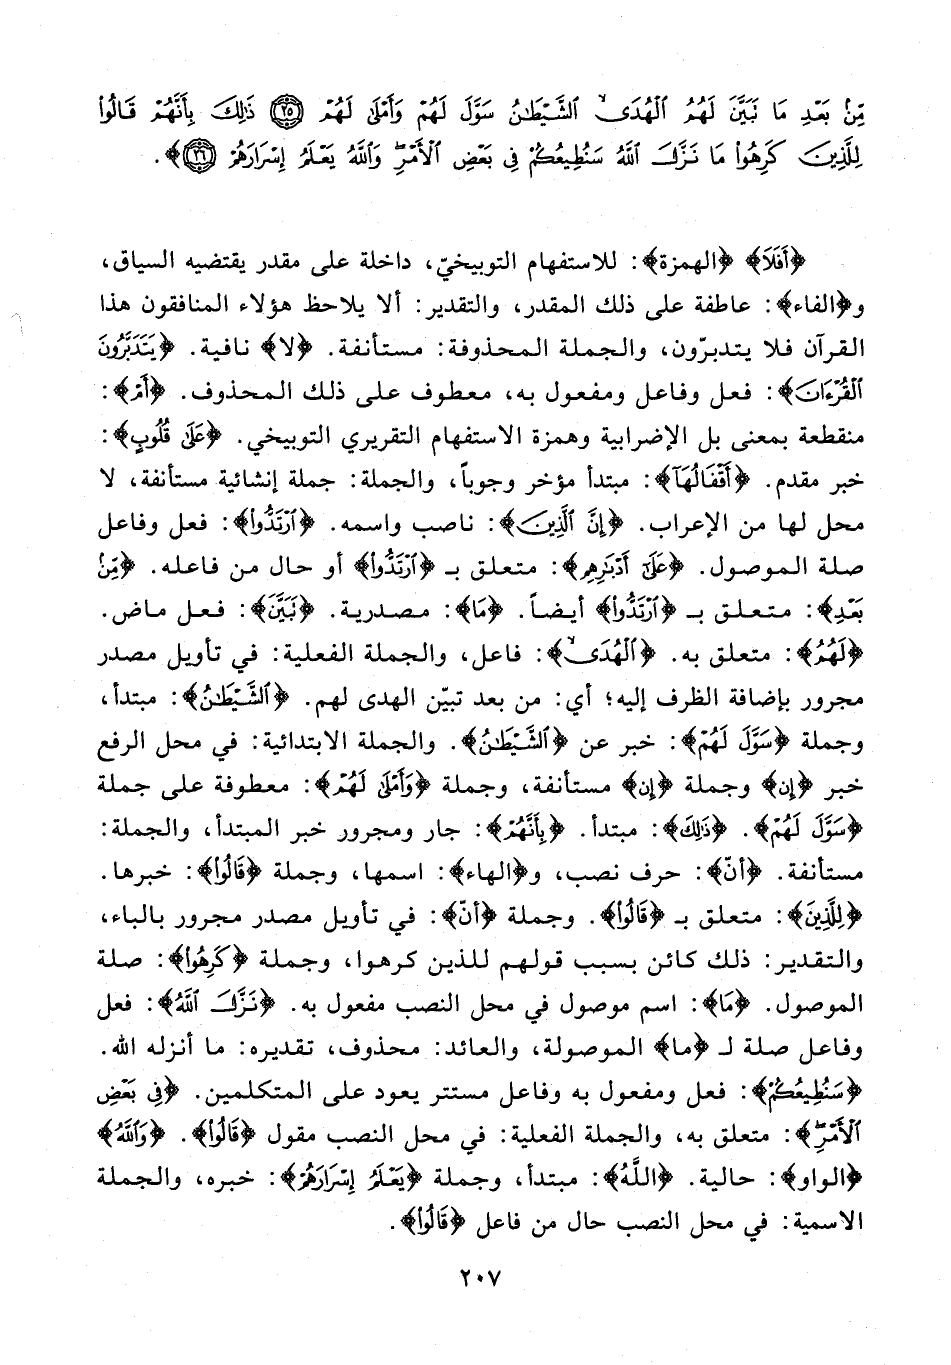 مِّنۢ بَعْدِ مَا تَبَيَّنَ لَهُمُ ٱلْهُدَى ۙ ٱلشَّيْطَٰنُ سَوَّلَ لَهُمْ وَأَمْلَىٰ لَهُمْ ٢٥ ذَٰلِكَ بِأَنَّهُمْ قَالُوا۟
لِلَّذِينَ كَرِهُوا۟ مَا نَزَّلَ ٱللَّهُ سَنُطِيعُكُمْ فِى بَعْضِ ٱلْأَمْرِ ۖ وَٱللَّهُ يَعْلَمُ إِسْرَارَهُمْ ٢٦﴾.
﴿أَفَلَا﴾ ﴿الهمزة﴾: للاستفهام التوبيخيّ، داخلة على مقدر يقتضيه السياق،
و﴿الفاء﴾: عاطفة على ذلك المقدر، والتقدير: ألا يلاحظ هؤلاء المنافقون هذا
القرآن فلا يتدبرّون، والجملة المحذوفة: مستأنفة. ﴿لا﴾ نافية. ﴿يَتَدَبَّرُونَ
ٱلْقُرْءَانَ﴾: فعل وفاعل ومفعول به، معطوف على ذلك المحذوف. ﴿أَمْ﴾:
منقطعة بمعنى بل الإضرابية وهمزة الاستفهام التقريري التوبيخي. ﴿عَلَىٰ قُلُوبٍ﴾:
خبر مقدم. ﴿أَقْفَالُهَآ﴾: مبتدأ مؤخر وجوباً، والجملة: جملة إنشائية مستأنفة، لا
محل لها من الإعراب. ﴿إِنَّ ٱلَّذِينَ﴾: ناصب واسمه. ﴿ٱرْتَدُّوا۟﴾: فعل وفاعل
صلة الموصول. ﴿عَلَىٰٓ أَدْبَٰرِهِم﴾: متعلق بـ ﴿ٱرْتَدُّوا۟﴾ أو حال من فاعله. ﴿مِّنۢ
بَعْدِ﴾: متعلق بـ ﴿ٱرْتَدُّوا۟﴾ أيضاً. ﴿مَا﴾: مصدرية. ﴿تَبَيَّنَ﴾: فعل ماض.
﴿لَهُمُ﴾: متعلق به. ﴿ٱلْهُدَى ۙ﴾: فاعل، والجملة الفعلية: في تأويل مصدر
مجرور بإضافة الظرف إليه؛ أي: من بعد تبيّن الهدى لهم. ﴿ٱلشَّيْطَٰنُ﴾: مبتدأ،
وجملة ﴿سَوَّلَ لَهُمْ﴾: خبر عن ﴿ٱلشَّيْطَٰنُ﴾. والجملة الابتدائية: في محل الرفع
خبر ﴿إن﴾ وجملة ﴿إن﴾ مستأنفة، وجملة ﴿وَأَمْلَىٰ لَهُمْ﴾: معطوفة على جملة
﴿سَوَّلَ لَهُمْ﴾. ﴿ذَٰلِكَ﴾: مبتدأ. ﴿بِأَنَّهُمْ﴾: جار ومجرور خبر المبتدأ، والجملة:
مستأنفة. ﴿أنّ﴾: حرف نصب، و﴿الهاء﴾: اسمها، وجملة ﴿قَالُوا۟﴾: خبرها.
﴿لِلَّذِينَ﴾: متعلق بـ ﴿قَالُوا۟﴾. وجملة ﴿أنّ﴾: في تأويل مصدر مجرور بالباء،
والتقدير: ذلك كائن بسبب قولهم للذين كرهوا، وجملة ﴿كَرِهُوا۟﴾: صلة
الموصول. ﴿مَا﴾: اسم موصول في محل النصب مفعول به. ﴿نَزَّلَ ٱللَّهُ﴾: فعل
وفاعل صلة لـ ﴿ما﴾ الموصولة، والعائد: محذوف، تقديره: ما أنزله الله.
﴿سَنُطِيعُكُمْ﴾: فعل ومفعول به وفاعل مستتر يعود على المتكلمين. ﴿فِى بَعْضِ
ٱلْأَمْرِ ۖ﴾: متعلق به، والجملة الفعلية: في محل النصب مقول ﴿قَالُوا۟﴾. ﴿وَٱللَّهُ﴾
﴿الواو﴾: حالية. ﴿اللَّهُ﴾: مبتدأ، وجملة ﴿يَعْلَمُ إِسْرَارَهُمْ﴾: خبره، والجملة
الاسمية: في محل النصب حال من فاعل ﴿قَالُوا۟﴾.
٢٠٧